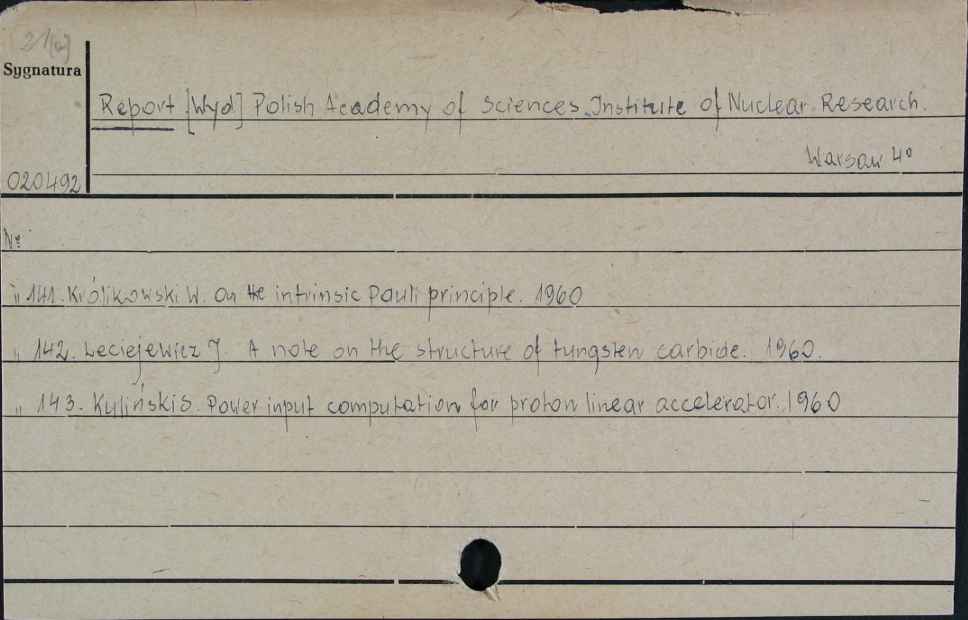 Sygnatura
Report [Wyd] Polish Academy of Sciences. Institute of Nuclear Research.
Warsaw 4°
020492
Nr
„ 141. Królikowski W. On the intrinsic Pauli principle. 1960
„ 142. Leciejewicz J. A note on the structure of tungsten carbide. 1960.
„ 143. Kuliński S. Power input computation for proton linear accelerator. 1960